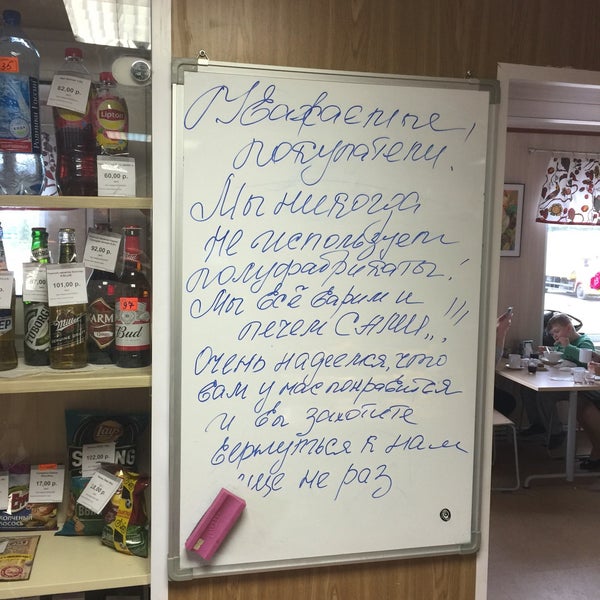 Уважаемые
покупатели!
Мы никогда
не используем
полуфабрикаты!
Мы всё варим и
печем САМИ..!!!
Очень надеемся, что
вам у нас понравится
и вы захотите
вернуться к нам
ещё не раз
35
82,00 р.
Lipton
60,00 р.
92,00 р.
101,00 р.
TUBORG
Miller
ARM
97
Bud
Lay's
STRONG
102,00 р.
17,00 р.